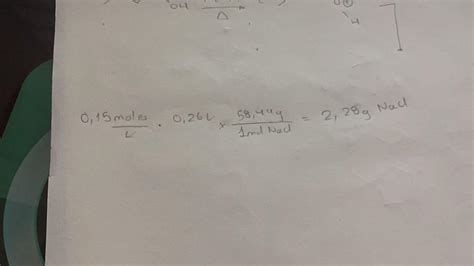 OH Δ
0,15 moles/L · 0,26L × 58,44g/1mol NaCl = 2,28g NaCl